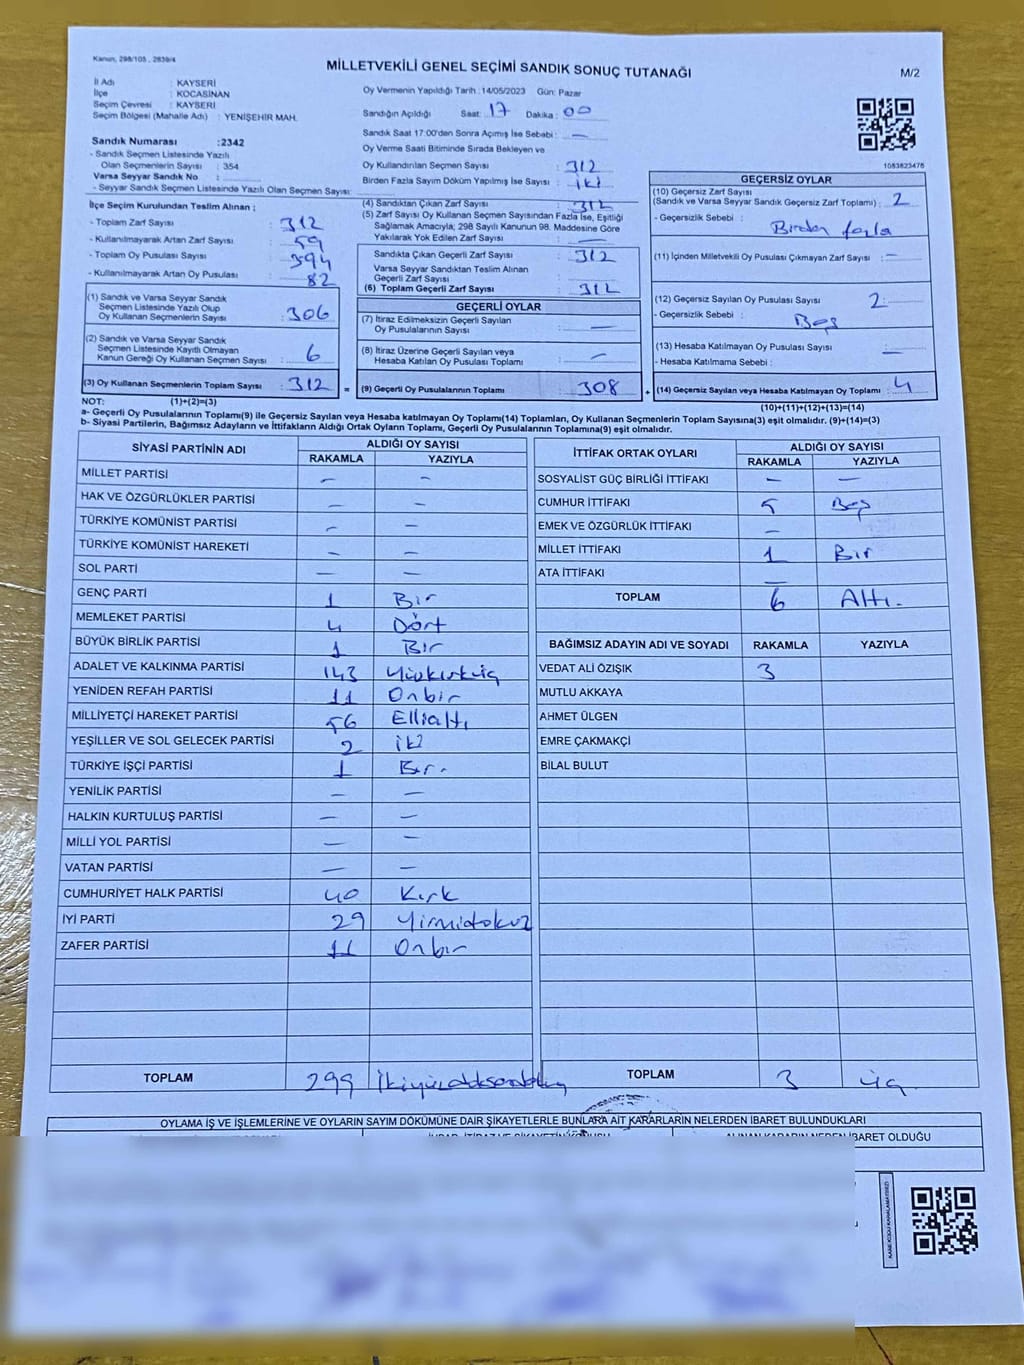 Kanun, 298/105 , 2839/4
MİLLETVEKİLİ GENEL SEÇİMİ SANDIK SONUÇ TUTANAĞI
M/2
İl Adı : KAYSERİ
İlçe : KOCASİNAN
Seçim Çevresi : KAYSERİ
Seçim Bölgesi (Mahalle Adı) : YENİŞEHİR MAH.
Sandık Numarası :2342
- Sandık Seçmen Listesinde Yazılı
Olan Seçmenlerin Sayısı : 354
Varsa Seyyar Sandık No :
- Seyyar Sandık Seçmen Listesinde Yazılı Olan Seçmen Sayısı:
Oy Vermenin Yapıldığı Tarih :14/05/2023 Gün: Pazar
Sandığın Açıldığı Saat: 17 Dakika: 00
Sandık Saat 17:00'den Sonra Açımış İse Sebebi : —
Oy Verme Saati Bitiminde Sırada Bekleyen ve
Oy Kullandırılan Seçmen Sayısı : 312
Birden Fazla Sayım Döküm Yapılmış İse Sayısı : iki
1083823476
İlçe Seçim Kurulundan Teslim Alınan ;
- Toplam Zarf Sayısı : 312
- Kullanılmayarak Artan Zarf Sayısı : 59
- Toplam Oy Pusulası Sayısı : 394
- Kullanılmayarak Artan Oy Pusulası : 82
(1) Sandık ve Varsa Seyyar Sandık
Seçmen Listesinde Yazılı Olup
Oy Kullanan Seçmenlerin Sayısı : 306
(2) Sandık ve Varsa Seyyar Sandık
Seçmen Listesinde Kayıtlı Olmayan
Kanun Gereği Oy Kullanan Seçmen Sayısı : 6
(3) Oy Kullanan Seçmenlerin Toplam Sayısı : 312 =
(4) Sandıktan Çıkan Zarf Sayısı : 312
(5) Zarf Sayısı Oy Kullanan Seçmen Sayısından Fazla İse, Eşitliği
Sağlamak Amacıyla; 298 Sayılı Kanunun 98. Maddesine Göre
Yakılarak Yok Edilen Zarf Sayısı : —
Sandıkta Çıkan Geçerli Zarf Sayısı : 312
Varsa Seyyar Sandıktan Teslim Alınan
Geçerli Zarf Sayısı :
(6) Toplam Geçerli Zarf Sayısı : 312
GEÇERLİ OYLAR
(7) İtiraz Edilmeksizin Geçerli Sayılan
Oy Pusulalarının Sayısı : —
(8) İtiraz Üzerine Geçerli Sayılan veya
Hesaba Katılan Oy Pusulası Toplamı : —
(9) Geçerli Oy Pusulalarının Toplamı : 308 +
GEÇERSİZ OYLAR
(10) Geçersiz Zarf Sayısı
(Sandık ve Varsa Seyyar Sandık Geçersiz Zarf Toplamı) : 2
- Geçersizlik Sebebi : Birden fazla
(11) İçinden Milletvekili Oy Pusulası Çıkmayan Zarf Sayısı: —
(12) Geçersiz Sayılan Oy Pusulası Sayısı : 2
- Geçersizlik Sebebi : Boş
(13) Hesaba Katılmayan Oy Pusulası Sayısı : —
- Hesaba Katılmama Sebebi :
(14) Geçersiz Sayılan veya Hesaba Katılmayan Oy Toplamı : 4
NOT: (1)+(2)=(3)
(10)+(11)+(12)+(13)=(14)
a- Geçerli Oy Pusulalarının Toplamı(9) ile Geçersiz Sayılan veya Hesaba katılmayan Oy Toplamı(14) Toplamları, Oy Kullanan Seçmenlerin Toplam Sayısına(3) eşit olmalıdır. (9)+(14)=(3)
b- Siyasi Partilerin, Bağımsız Adayların ve İttifakların Aldığı Ortak Oyların Toplamı, Geçerli Oy Pusulalarının Toplamına(9) eşit olmalıdır.
SİYASİ PARTİNİN ADI ALDIĞI OY SAYISI
RAKAMLA YAZIYLA
MİLLET PARTİSİ — —
HAK VE ÖZGÜRLÜKLER PARTİSİ — —
TÜRKİYE KOMÜNİST PARTİSİ — —
TÜRKİYE KOMÜNİST HAREKETİ — —
SOL PARTİ — —
GENÇ PARTİ 1 Bir
MEMLEKET PARTİSİ 4 Dört
BÜYÜK BİRLİK PARTİSİ 1 Bir
ADALET VE KALKINMA PARTİSİ 143 Yüzkırküç
YENİDEN REFAH PARTİSİ 11 Onbir
MİLLİYETÇİ HAREKET PARTİSİ 56 Ellialtı
YEŞİLLER VE SOL GELECEK PARTİSİ 2 iki
TÜRKİYE İŞÇİ PARTİSİ 1 Bir.
YENİLİK PARTİSİ — —
HALKIN KURTULUŞ PARTİSİ — —
MİLLİ YOL PARTİSİ — —
VATAN PARTİSİ — —
CUMHURİYET HALK PARTİSİ 40 Kırk
İYİ PARTİ 29 Yirmidokuz
ZAFER PARTİSİ 11 Onbir
TOPLAM 299 İkiyüzdoksandokuz
İTTİFAK ORTAK OYLARI ALDIĞI OY SAYISI
RAKAMLA YAZIYLA
SOSYALİST GÜÇ BİRLİĞİ İTTİFAKI — —
CUMHUR İTTİFAKI 5 Beş
EMEK VE ÖZGÜRLÜK İTTİFAKI —
MİLLET İTTİFAKI 1 Bir
ATA İTTİFAKI —
TOPLAM 6 Altı.
BAĞIMSIZ ADAYIN ADI VE SOYADI RAKAMLA YAZIYLA
VEDAT ALİ ÖZIŞIK 3
MUTLU AKKAYA
AHMET ÜLGEN
EMRE ÇAKMAKÇİ
BİLAL BULUT
TOPLAM 3 üç
OYLAMA İŞ VE İŞLEMLERİNE VE OYLARIN SAYIM DÖKÜMÜNE DAİR ŞİKAYETLERLE BUNLARA AİT KARARLARIN NELERDEN İBARET BULUNDUKLARI
İBARET OLDUĞU